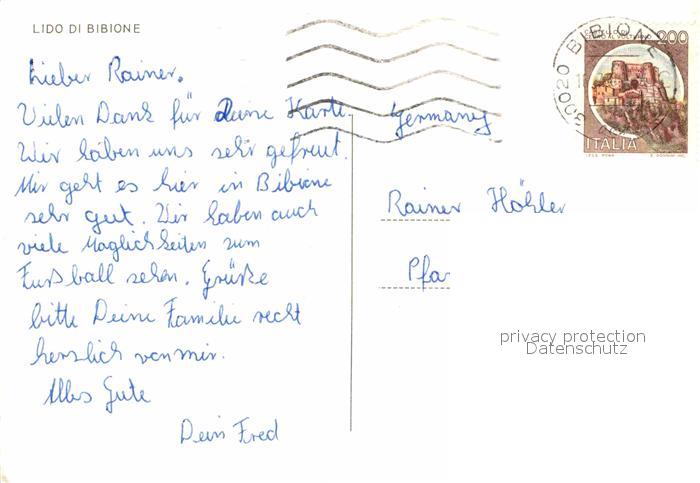 LIDO DI BIBIONE
Lieber Rainer.
Vielen Dank für Deine Karte.
Wir haben uns sehr gefreut.
Mir geht es hier in Bibione
sehr gut. Wir haben auch
viele Möglichkeiten zum
Fußball sehen. Grüße
bitte Deine Familie recht
herzlich von mir.
Alles Gute
Dein Fred
Germany
Rainer Höhler
Pfa
200
ITALIA
30020 BIBIONE
privacy protection
Datenschutz